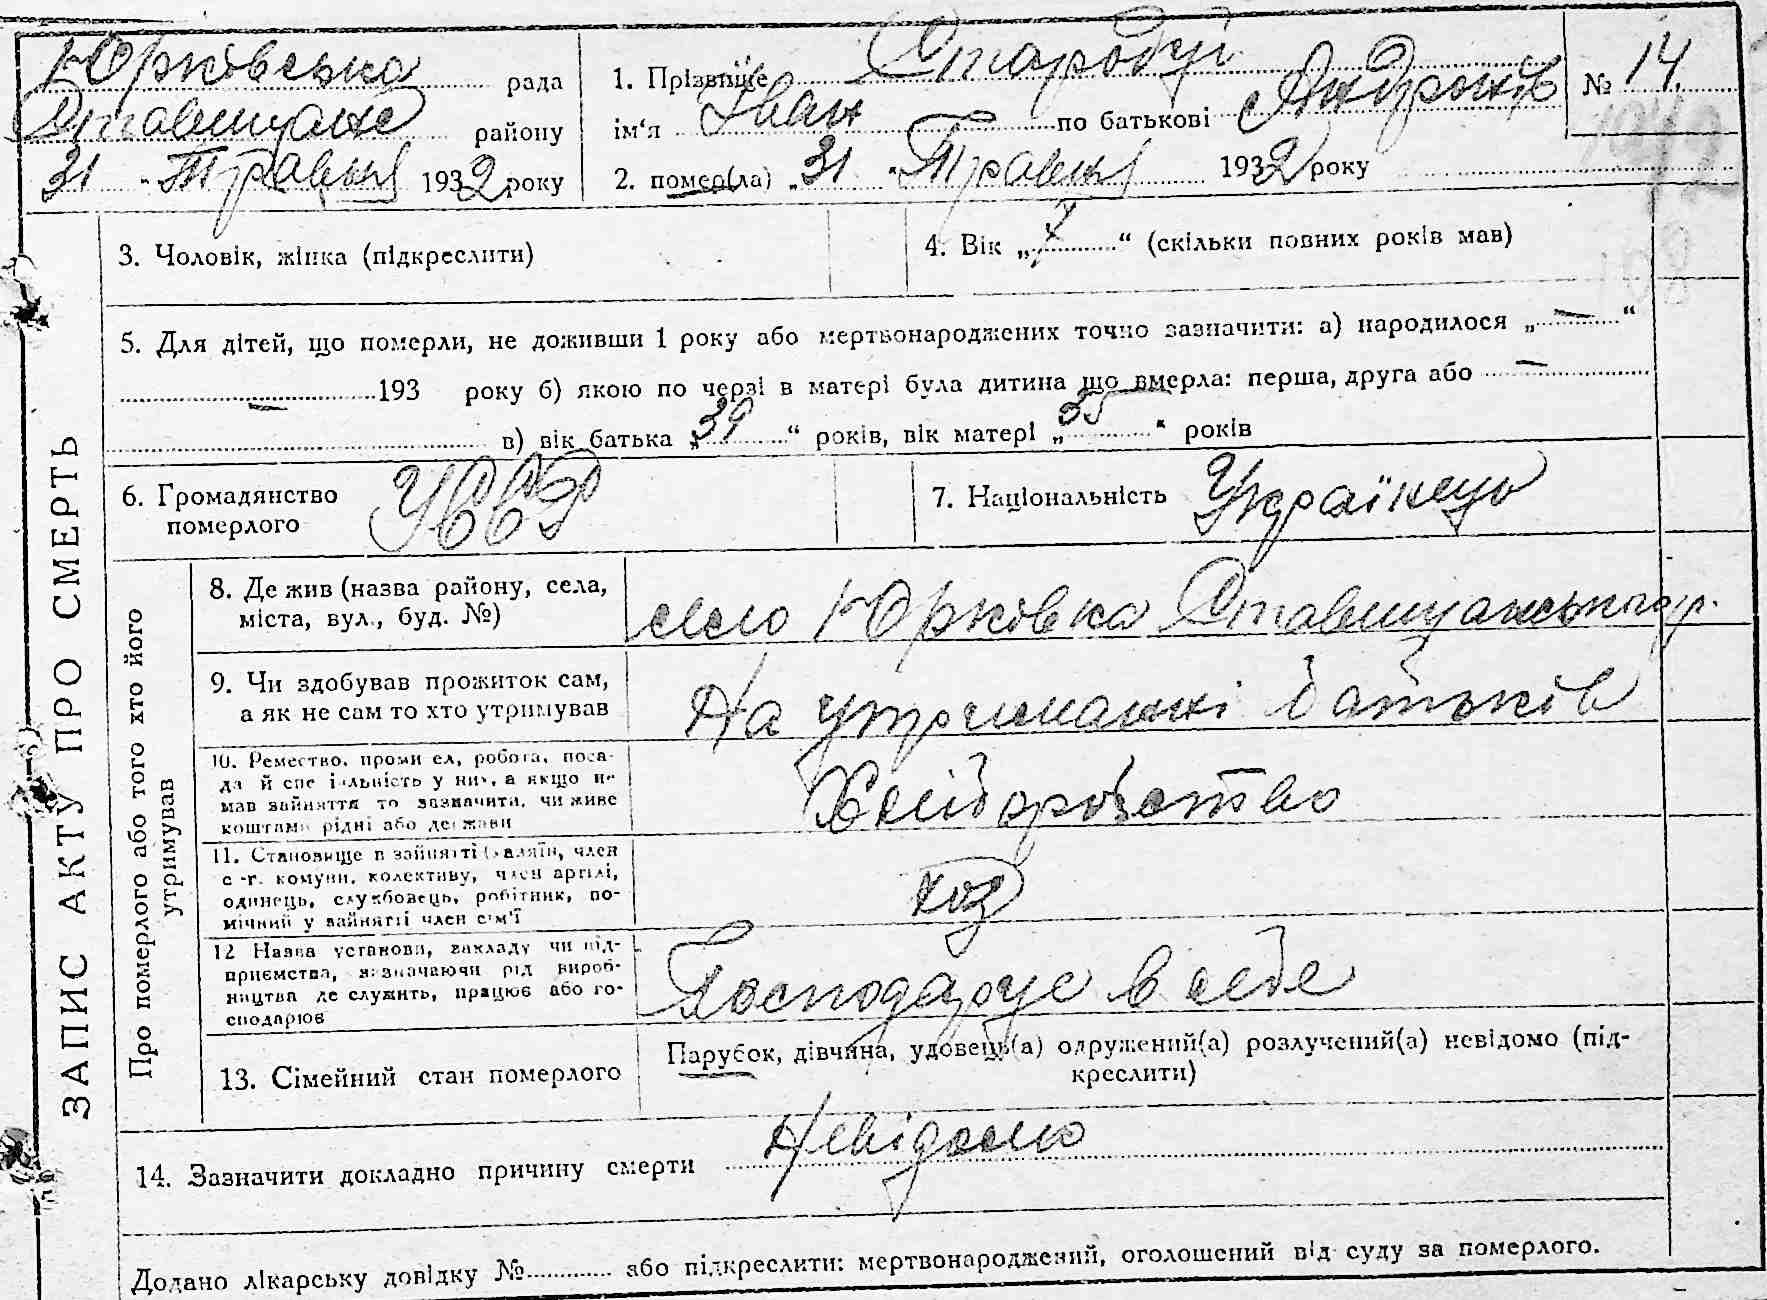 ЗАПИС АКТУ ПРО СМЕРТЬ
Юрківська рада
Ставищанськ району
31 " Травня 1932 року
1. Прізвище Стародуб
ім'я Іван по батькові Андронів
2. помер(ла) „31 " Травня 1932 року
№ 14.
3. Чоловік, жінка (підкреслити)
4. Вік „7" (скільки повних років мав)
5. Для дітей, що померли, не доживши 1 року або мертвонароджених точно зазначити: а) народилося „—"
— 193 року б) якою по черзі в матері була дитина що вмерла: перша, друга або —
в) вік батька „39" років, вік матері „35" років
6. Громадянство
померлого
УССР
7. Національність Українець
Про померлого або того хто його
утримував
8. Де жив (назва району, села,
міста, вул., буд. №)
село Юрковка Ставищанського р.
9. Чи здобував прожиток сам,
а як не сам то хто утримував
На утриманні батьків
10. Ремество, промисел, робота, поса-
да й спеціальність у них, а якщо не
мав зайняття то зазначити, чи живе
коштами рідні або держави
Хліборобство
11. Становище в зайнятті (хазяїн, член
с.-г. комуни, колективу, член артілі,
одинець, службовець, робітник, по-
мічний у зайнятті член сім'ї
хоз
12 Назва установи, закладу чи під-
приємства, зазначаючи рід вироб-
ництва де служить, працює або го-
сподарює
Господарує в себе
13. Сімейний стан померлого
Парубок, дівчина, удовець(а) одружений(а) розлучений(а) невідомо (під-
креслити)
14. Зазначити докладно причину смерти Невідомо
Додано лікарську довідку № або підкреслити: мертвонароджений, оголошений від суду за померлого.